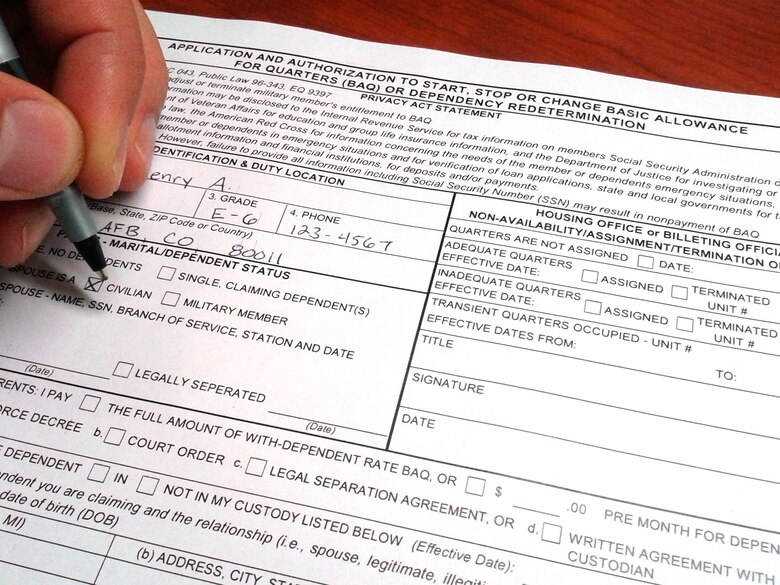 APPLICATION AND AUTHORIZATION TO START, STOP OR CHANGE BASIC ALLOWANCE
FOR QUARTERS (BAQ) OR DEPENDENCY REDETERMINATION
PRIVACY ACT STATEMENT
C 043, Public Law 96-343, EQ 9397
adjust or terminate military member's entitlement to BAQ
may be disclosed to the Internal Revenue Service for tax information on members Social Security Administration
of Veteran Affairs for education and group life insurance information, and the Department of Justice for investigating or
law, the American Red Cross for information concerning the needs of the member or dependents emergency situations,
member or dependents in emergency situations and for verification of loan applications, state and local governments for
allotment information and financial institutions, for deposits and/or payments.
However, failure to provide all information including Social Security Number (SSN) may result in nonpayment of BAQ
IDENTIFICATION & DUTY LOCATION
enry A.
3. GRADE
E-6
4. PHONE
123-4567
Base, State, ZIP Code or Country)
AFB CO 80011
- MARITAL/DEPENDENT STATUS
E, NO DEPENDENTS
SINGLE, CLAIMING DEPENDENT(S)
SPOUSE IS A
CIVILIAN
MILITARY MEMBER
SPOUSE - NAME, SSN, BRANCH OF SERVICE, STATION AND DATE
(Date)
LEGALLY SEPERATED
(Date)
HOUSING OFFICE or BILLETING OFFICI
NON-AVAILABILITY/ASSIGNMENT/TERMINATION O
QUARTERS ARE NOT ASSIGNED
DATE:
ADEQUATE QUARTERS
EFFECTIVE DATE:
ASSIGNED
TERMINATED
UNIT #
INADEQUATE QUARTERS
EFFECTIVE DATE:
ASSIGNED
TERMINATED
UNIT #
TRANSIENT QUARTERS OCCUPIED - UNIT #
EFFECTIVE DATES FROM:
TO:
TITLE
SIGNATURE
DATE
RENTS: I PAY
THE FULL AMOUNT OF WITH-DEPENDENT RATE BAQ, OR
$ .00 PRE MONTH FOR DEPEN
ORCE DECREE b. COURT ORDER c. LEGAL SEPARATION AGREEMENT, OR d. WRITTEN AGREEMENT WITH
CUSTODIAN
DEPENDENT IN NOT IN MY CUSTODY LISTED BELOW (Effective Date):
ndent you are claiming and the relationship (i.e., spouse, legitimate, illegiti
date of birth (DOB)
MI)
(b) ADDRESS, CITY, STA